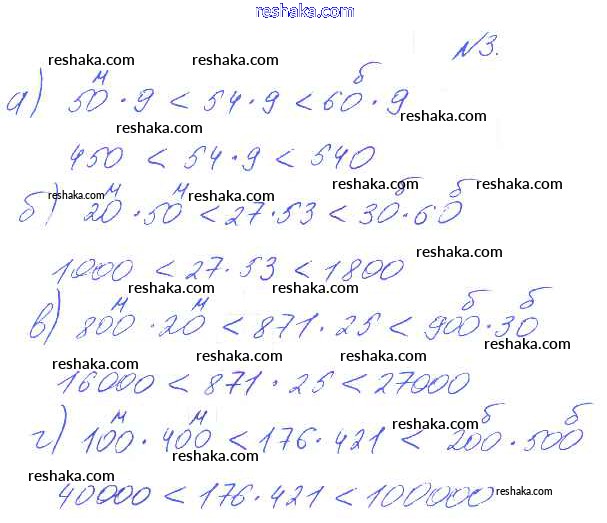 reshaka.com
№3.
reshaka.com reshaka.com
м б
а) 50 · 9 < 54 · 9 < 60 · 9
reshaka.com
reshaka.com
450 < 54 · 9 < 540
reshaka.com reshaka.com reshaka.com reshaka.com
м м б б
б) 20 · 50 < 27 · 53 < 30 · 60
reshaka.com
1000 < 27 · 53 < 1800
reshaka.com reshaka.com
м м б б
в) 800 · 20 < 871 · 25 < 900 · 30
reshaka.com
reshaka.com reshaka.com reshaka.com
16000 < 871 · 25 < 27000
м м б б
reshaka.com
г) 100 · 400 < 176 · 421 < 200 · 500
reshaka.com reshaka.com
reshaka.com
40000 < 176 · 421 < 100000
reshaka.com
reshaka.com reshaka.com